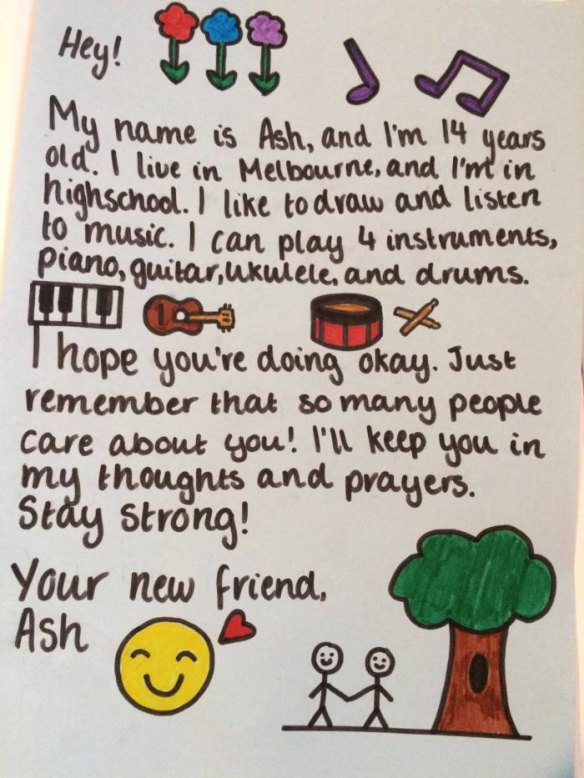 Hey!
My name is Ash, and I'm 14 years
old. I live in Melbourne, and I'm in
highschool. I like to draw and listen
to music. I can play 4 instruments,
piano, guitar, ukulele, and drums.
I hope you're doing okay. Just
remember that so many people
care about you! I'll keep you in
my thoughts and prayers.
Stay strong!
Your new friend,
Ash